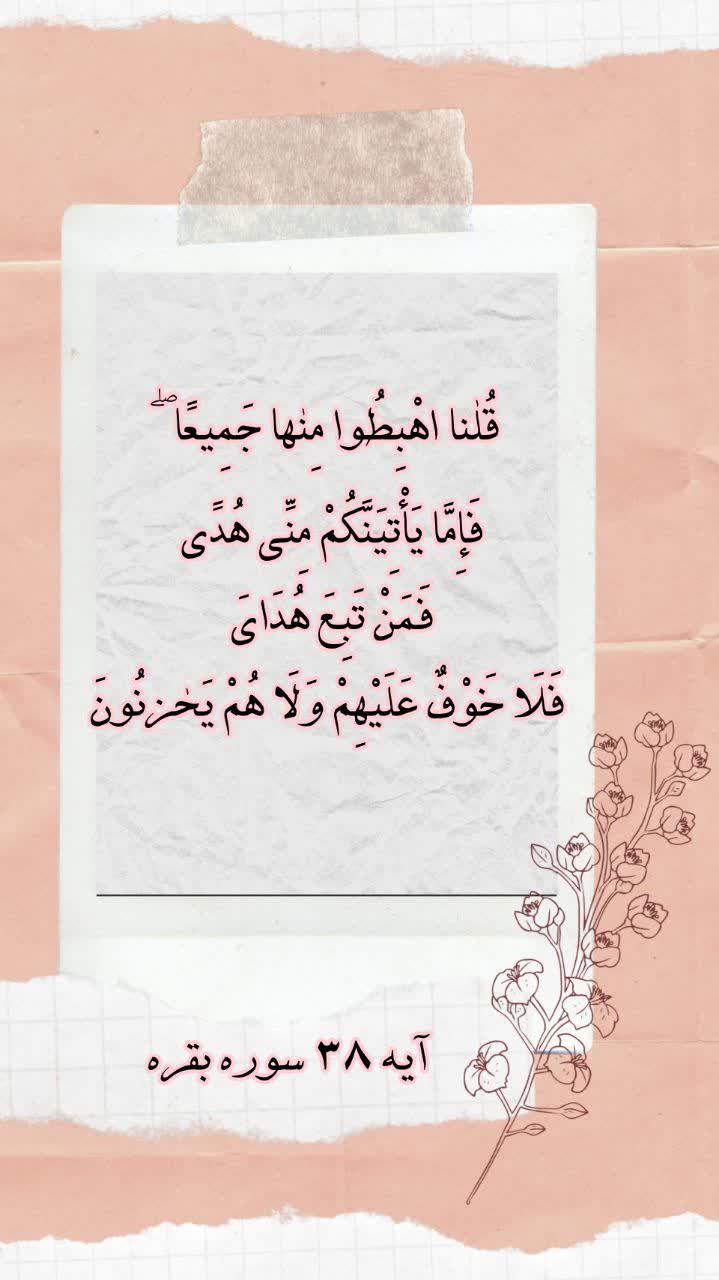 قُلْنا اهْبِطُوا مِنْها جَمِيعًا ۖ
فَإِمَّا يَأْتِيَنَّكُمْ مِنِّی هُدًی
فَمَنْ تَبِعَ هُدَایَ
فَلَا خَوْفٌ عَلَيْهِمْ وَلَا هُمْ يَحْزَنُونَ
آیه ۳۸ سوره بقره